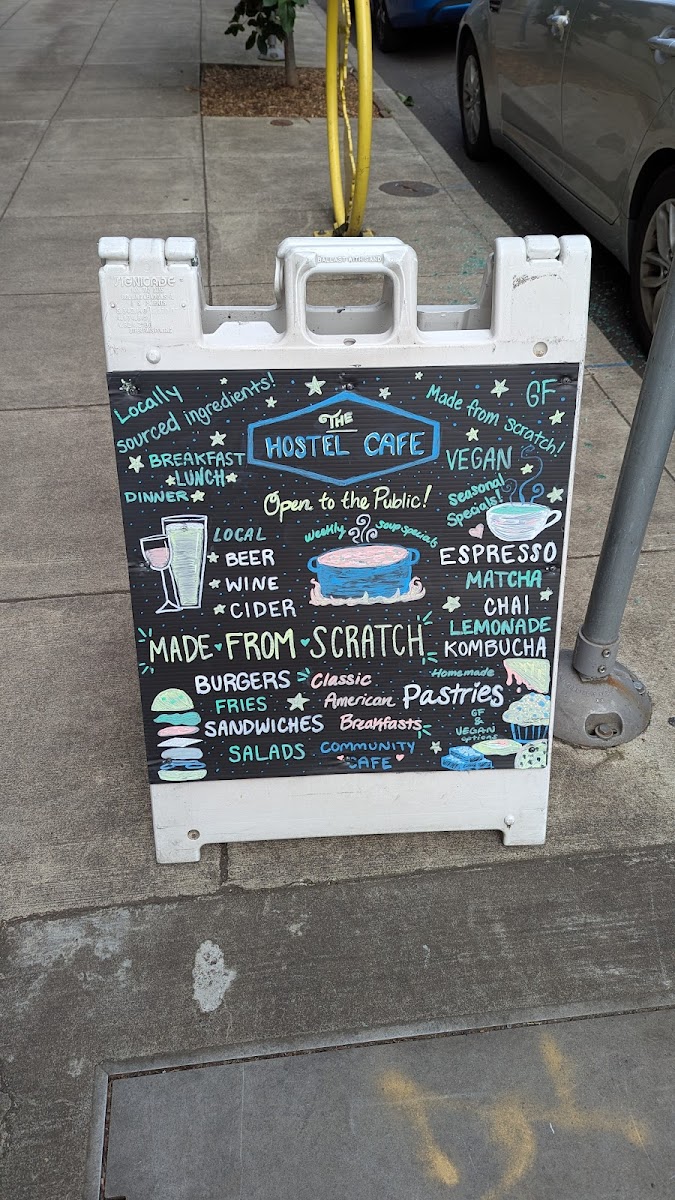 BALLAST WITH SAND
SIGNICADE
Locally
sourced ingredients!
BREAKFAST
LUNCH
DINNER
THE
HOSTEL CAFE
Open to the Public!
Made from scratch!
GF
VEGAN
Seasonal
Specials!
LOCAL
BEER
WINE
CIDER
Weekly soup specials
ESPRESSO
MATCHA
CHAI
LEMONADE
KOMBUCHA
MADE FROM SCRATCH
BURGERS
FRIES
SANDWICHES
SALADS
Classic
American
Breakfasts
COMMUNITY
CAFE
Homemade
Pastries
GF
&
VEGAN
options